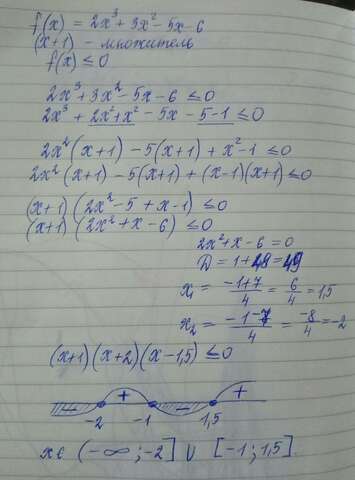 f(x) = 2x³ + 3x² - 5x - 6
(x+1) - множитель
f(x) ≤ 0
2x³ + 3x² - 5x - 6 ≤ 0
2x³ + 2x² + x² - 5x - 5 - 1 ≤ 0
2x² (x+1) - 5(x+1) + x² - 1 ≤ 0
2x² (x+1) - 5(x+1) + (x-1)(x+1) ≤ 0
(x+1) (2x² - 5 + x - 1) ≤ 0
(x+1) (2x² + x - 6) ≤ 0
2x² + x - 6 = 0
D = 1 + 48 = 49
x₁ = (-1+7)/4 = 6/4 = 1,5
x₂ = (-1-7)/4 = -8/4 = -2
(x+1)(x+2)(x-1,5) ≤ 0
- + - +
-2 -1 1,5
x ∈ (-∞; -2] ∪ [-1; 1,5].